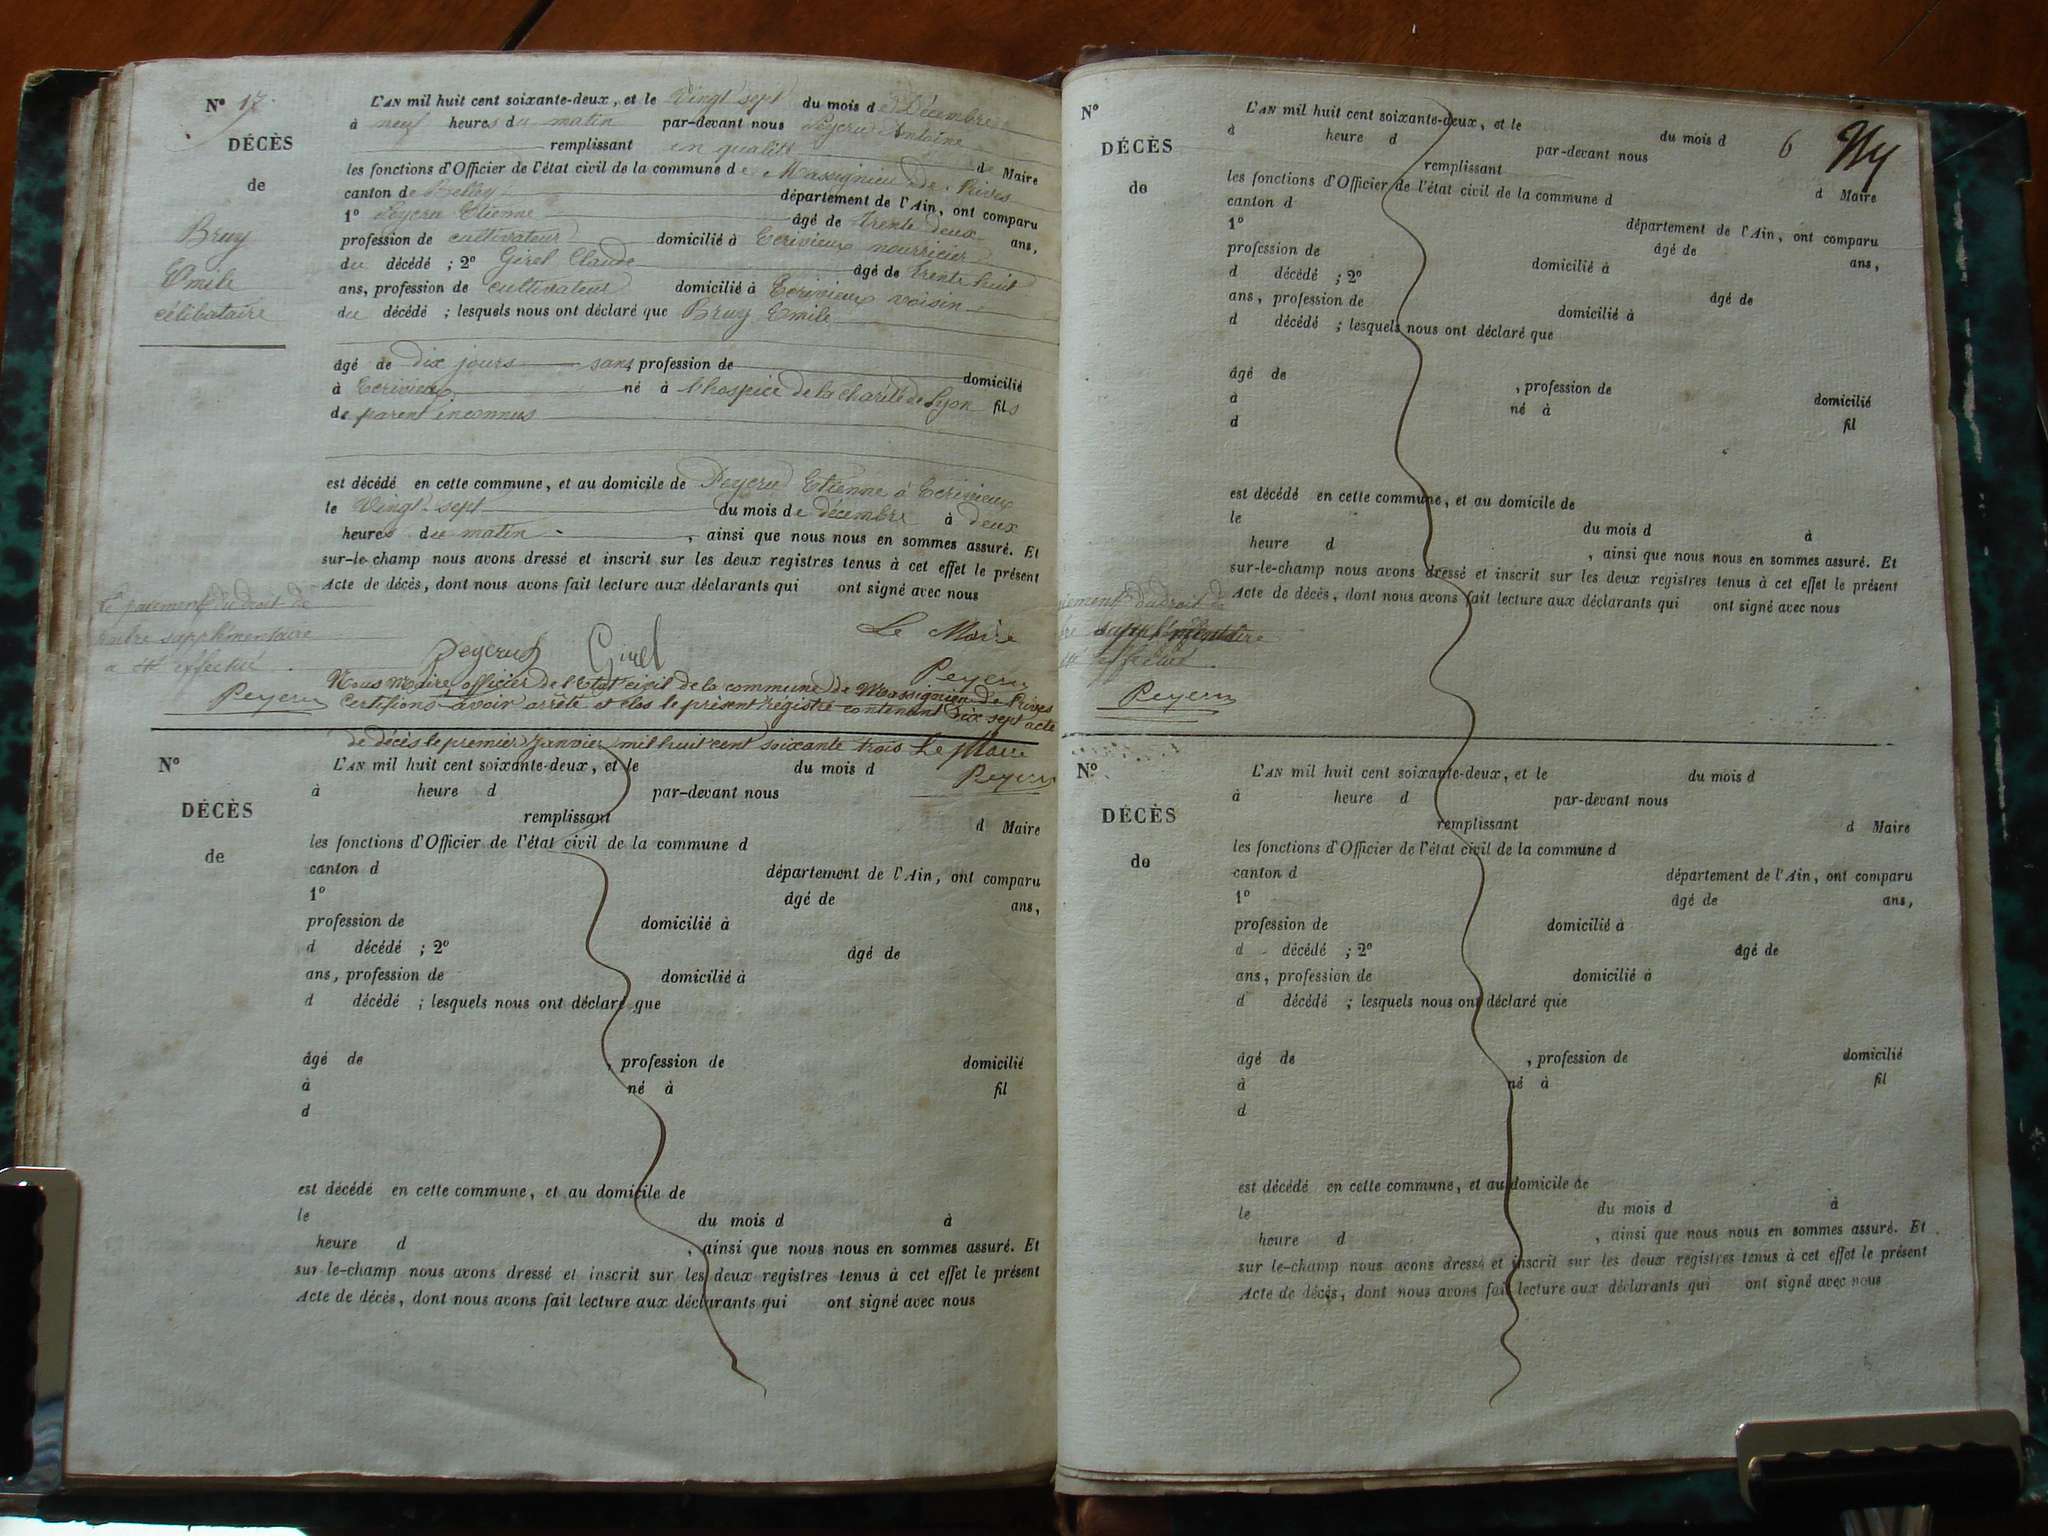 N° 17
DÉCÈS
de
Bruy
Emile
célibataire
L'AN mil huit cent soixante-deux, et le Vingt sept du mois de Décembre
à neuf heures du matin par-devant nous Peycru Antoine
remplissant en qualité de Maire
les fonctions d'Officier de l'état civil de la commune de Massignieu de Rives
canton de Belley département de l'Ain, ont comparu
1° Peycru Etienne âgé de trente deux ans,
profession de cultivateur domicilié à Ecrivieux nourricier
du décédé ; 2° Girel Claude âgé de trente huit
ans, profession de cultivateur domicilié à Ecrivieux voisin
du décédé ; lesquels nous ont déclaré que Bruy Emile
âgé de dix jours sans profession de domicilié
à Ecrivieux né à l'hospice de la Charité de Lyon fils
de parent inconnus
est décédé en cette commune, et au domicile de Peycru Etienne à Ecrivieux
le Vingt-sept du mois de décembre à deux
heures du matin , ainsi que nous nous en sommes assuré. Et
sur-le-champ nous avons dressé et inscrit sur les deux registres tenus à cet effet le présent
Acte de décès, dont nous avons fait lecture aux déclarants qui ont signé avec nous
Le Maire
Peycru Girel Peycru
Le paiement du droit de
timbre supplémentaire
a été effectué
Peycru
Nous Maire, officier de l'Etat civil de la commune de Massignieu de Rives
Certifions avoir arrêté et clos le présent régistre contenant dix sept acte
de décès le premier Janvier mil huit cent soixante trois Le Maire
Peycru
N°
DÉCÈS
de
L'AN mil huit cent soixante-deux, et le du mois d
à heure d par-devant nous
remplissant d Maire
les fonctions d'Officier de l'état civil de la commune d
canton d département de l'Ain, ont comparu
1° âgé de ans,
profession de domicilié à
d décédé ; 2° âgé de
ans, profession de domicilié à
d décédé ; lesquels nous ont déclaré que
âgé de , profession de domicilié
à né à fil
d
est décédé en cette commune, et au domicile de
le du mois d à
heure d , ainsi que nous nous en sommes assuré. Et
sur le-champ nous avons dressé et inscrit sur les deux registres tenus à cet effet le présent
Acte de décès, dont nous avons fait lecture aux déclarants qui ont signé avec nous
N°
DÉCÈS
de
6
L'AN mil huit cent soixante-deux, et le du mois d
à heure d par-devant nous
remplissant d Maire
les fonctions d'Officier de l'état civil de la commune d
canton d département de l'Ain, ont comparu
1° âgé de ans,
profession de domicilié à
d décédé ; 2° âgé de
ans, profession de domicilié à
d décédé ; lesquels nous ont déclaré que
âgé de , profession de domicilié
à né à fil
d
est décédé en cette commune, et au domicile de
le du mois d à
heure d , ainsi que nous nous en sommes assuré. Et
sur-le-champ nous avons dressé et inscrit sur les deux registres tenus à cet effet le présent
Acte de décès, dont nous avons fait lecture aux déclarants qui ont signé avec nous
du droit de
supplémentaire
effectué
Peycru
N°
DÉCÈS
de
L'AN mil huit cent soixante-deux, et le du mois d
à heure d par-devant nous
remplissant d Maire
les fonctions d'Officier de l'état civil de la commune d
canton d département de l'Ain, ont comparu
1° âgé de ans,
profession de domicilié à
d décédé ; 2° âgé de
ans, profession de domicilié à
d décédé ; lesquels nous ont déclaré que
âgé de , profession de domicilié
à né à fil
d
est décédé en cette commune, et au domicile de
le du mois d à
heure d , ainsi que nous nous en sommes assuré. Et
sur le-champ nous avons dressé et inscrit sur les deux registres tenus à cet effet le présent
Acte de décès, dont nous avons fait lecture aux déclarants qui ont signé avec nous